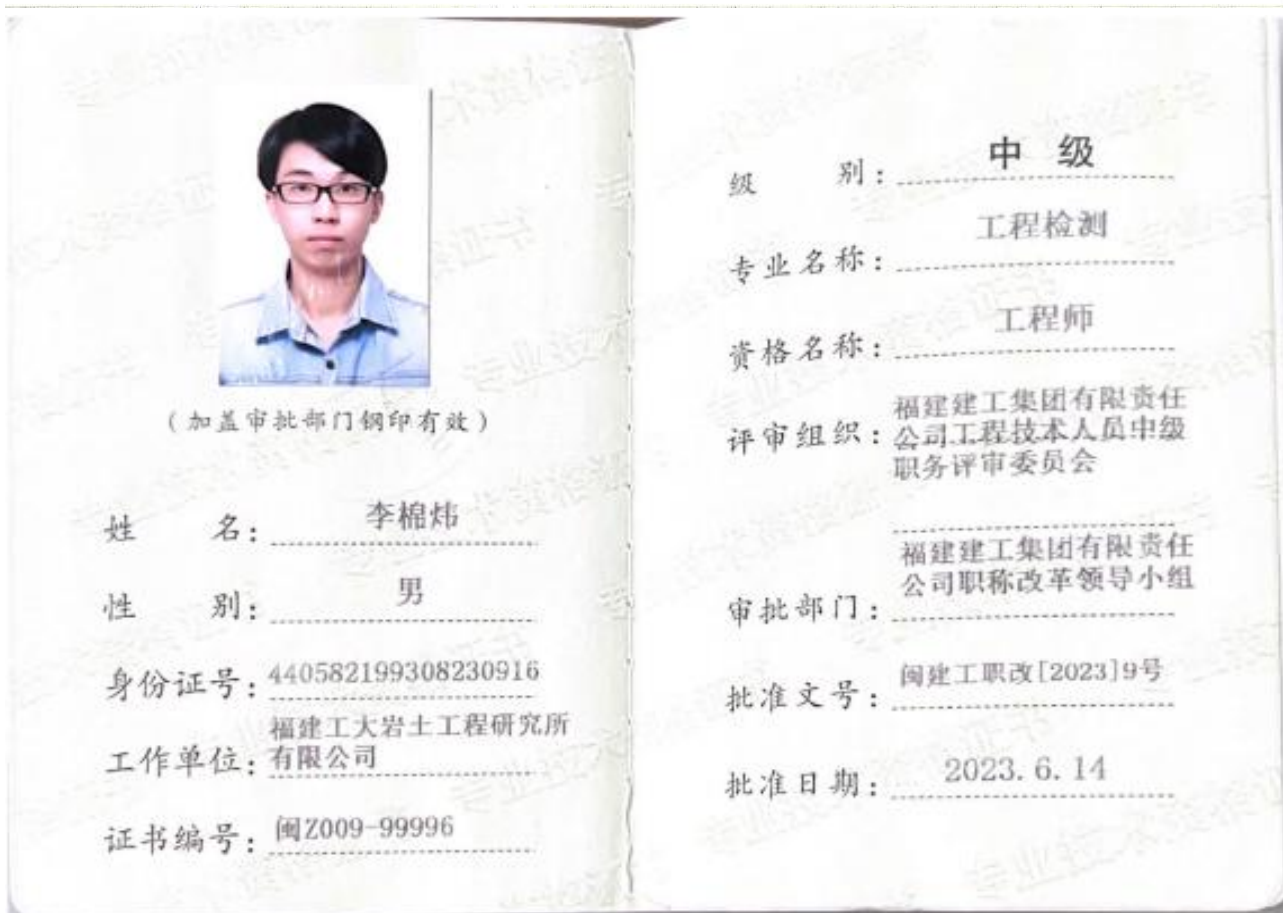 (加盖审批部门钢印有效)
姓 名: 李棉炜
性 别: 男
身份证号: 440582199308230916
工作单位: 福建工大岩土工程研究所
有限公司
证书编号: 闽Z009-99996
级 别: 中 级
专业名称: 工程检测
资格名称: 工程师
评审组织: 福建建工集团有限责任
公司工程技术人员中级
职务评审委员会
福建建工集团有限责任
公司职称改革领导小组
审批部门:
批准文号: 闽建工职改[2023]9号
批准日期: 2023.6.14